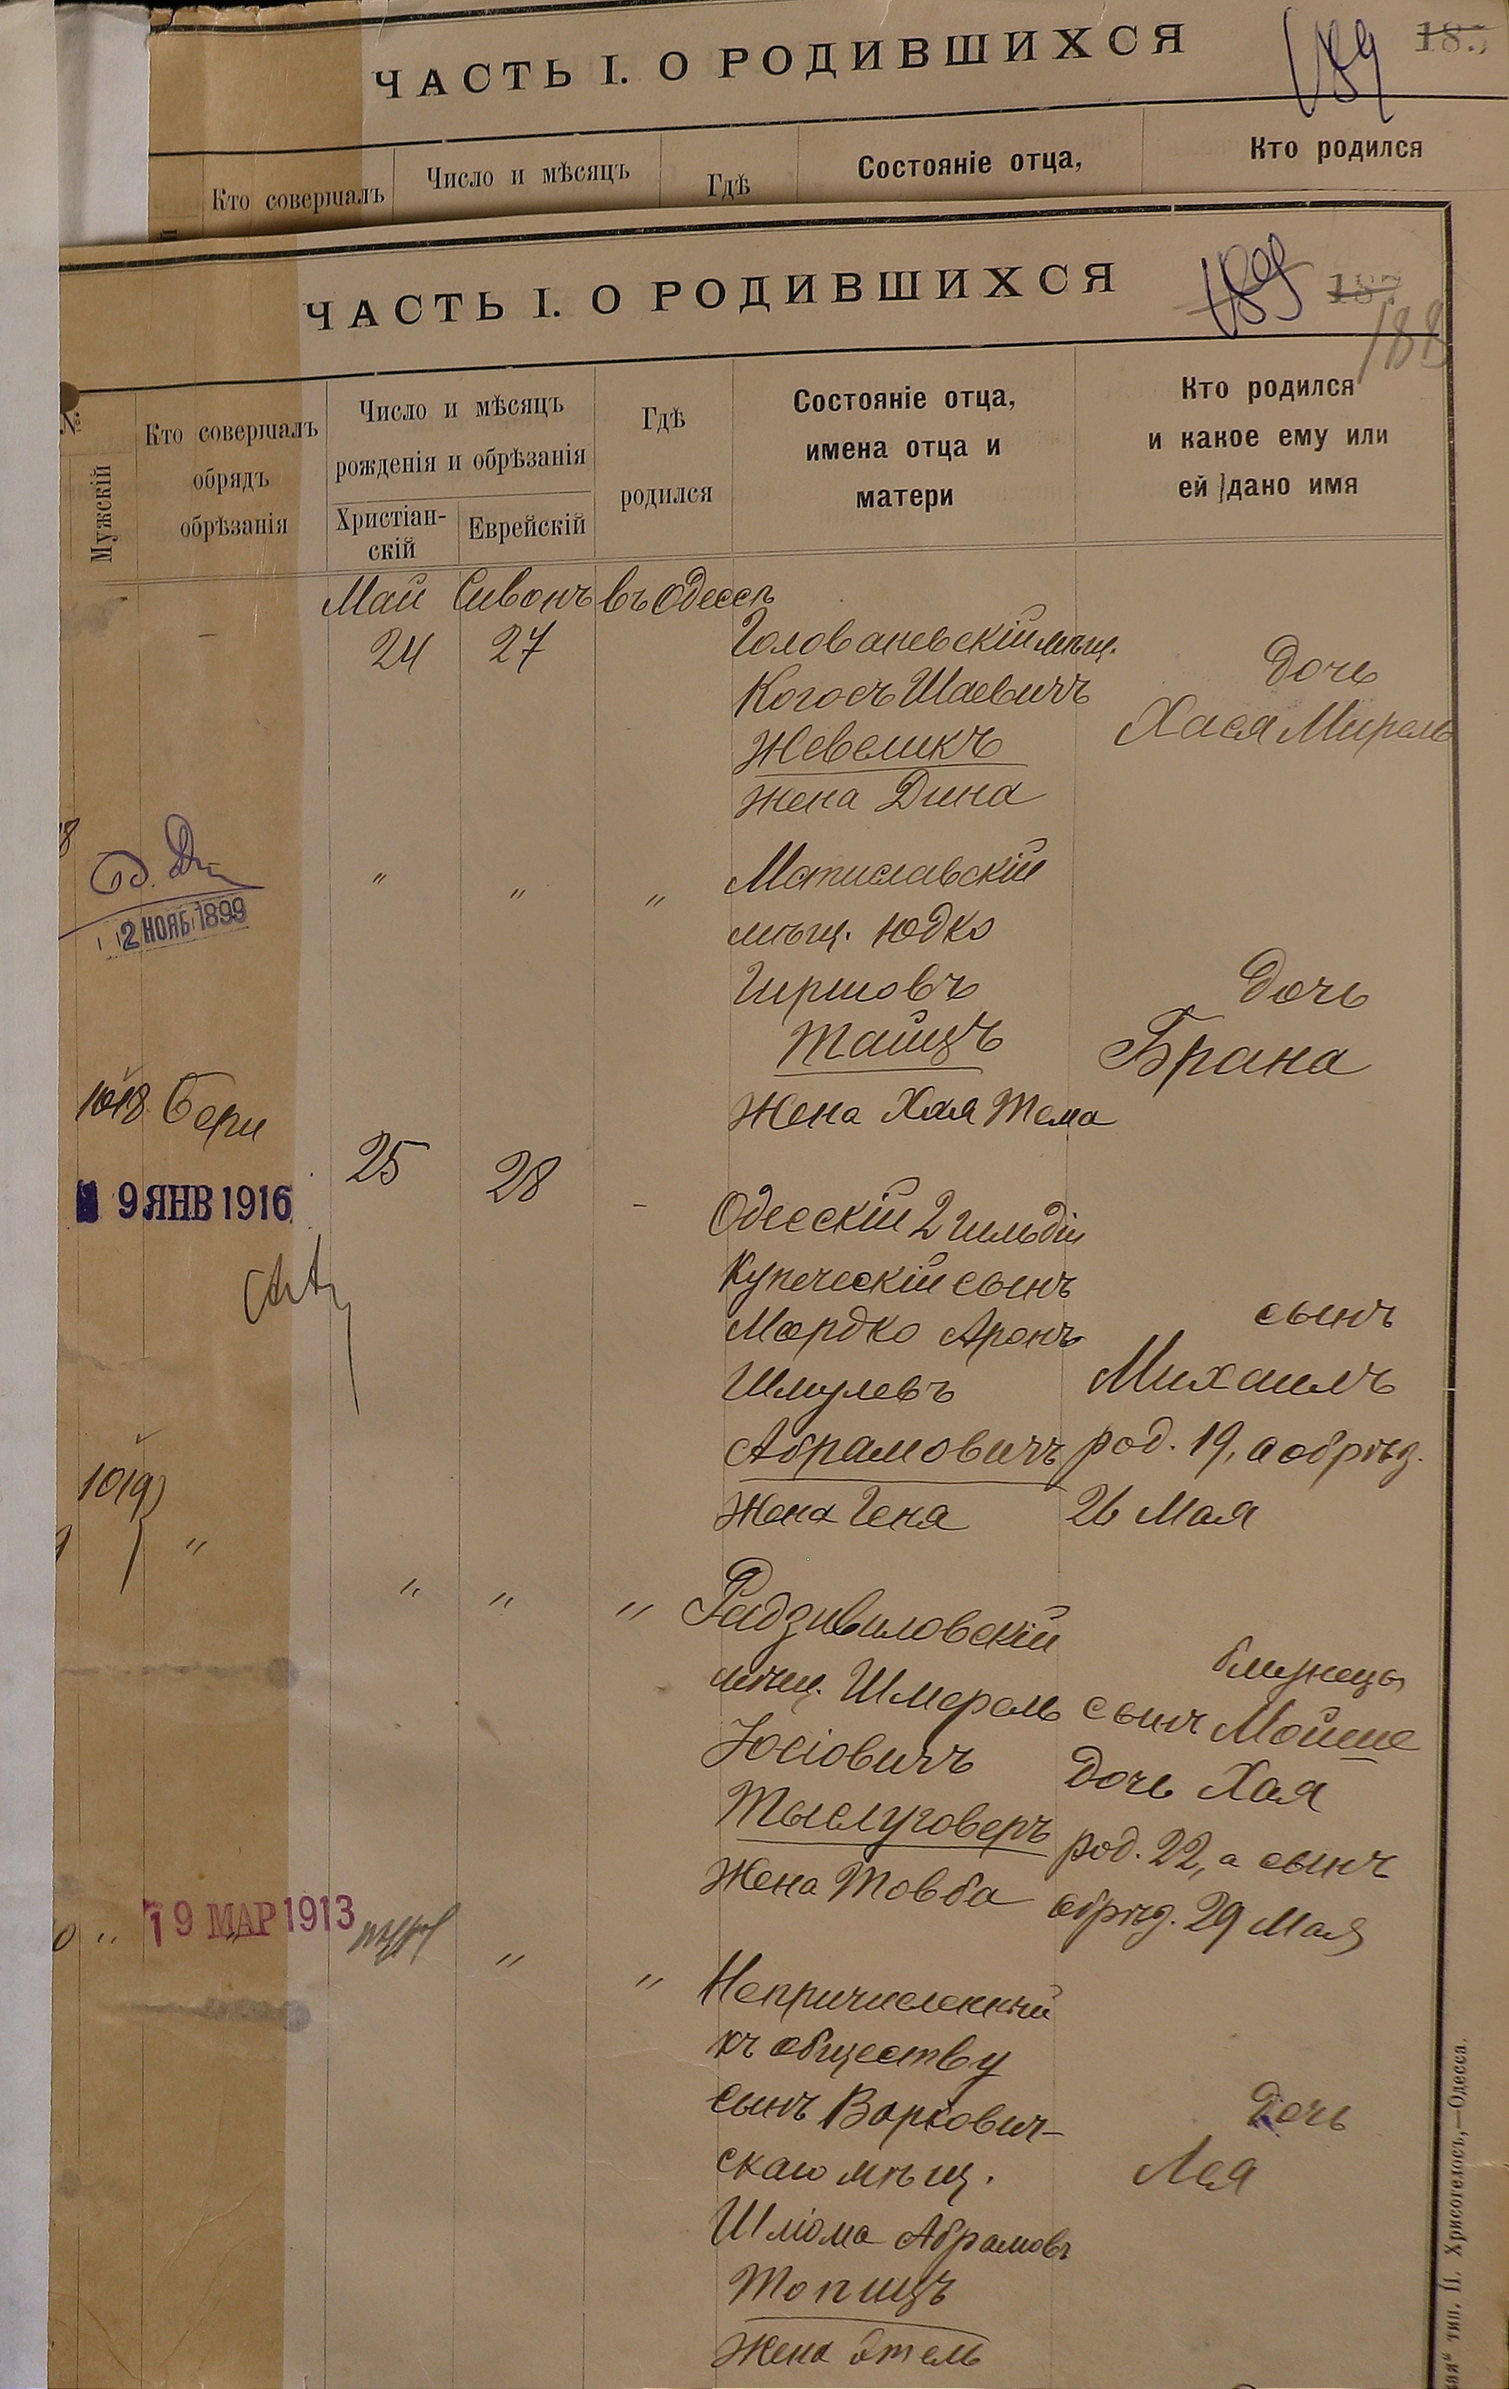 ЧАСТЬ I. О РОДИВШИХСЯ
189
Кто совершалъ
Число и мѣсяцъ
Гдѣ
Состояніе отца,
Кто родился
ЧАСТЬ I. О РОДИВШИХСЯ
189
187
188
№
Мужскій
Кто совершалъ
обрядъ
обрѣзанія
Число и мѣсяцъ
рожденія и обрѣзанія
Христіан-
скій
Еврейскій
Гдѣ
родился
Состояніе отца,
имена отца и
матери
Кто родился
и какое ему или
ей дано имя
Май Сивонъ въ Одессѣ
24 27
Голованевскій мѣщ.
Когосъ Шаевичъ
Жевеликъ
жена Дина
дочь
Хася Мирель
2 НОЯБ 1899
" " "
Мстиславскій
мѣщ. Юдко
Гиршовъ
Тайцъ
жена Хая Тема
дочь
Брана
1018 Бери
9 ЯНВ 1916
25 28
Одесскій 2 гильдіи
Купеческій сынъ
Мордко Аронъ
Шмулевъ
Абрамовичъ
жена Геня
сынъ
Михаилъ
род. 19, а обрѣз.
26 Мая
1019 "
" " "
Радзивиловскій
мѣщ. Шмерель
Іосіовичъ
Тыслуговеръ
жена Товба
близнецы
сынъ Мойше
дочь Хая
род. 22, а сынъ
обрѣз. 29 Мая
19 МАР 1913
" "
Непричисленный
къ обществу
сынъ Варкович-
скаго мѣщ.
Шліома Абрамовъ
Топицъ
жена Этель
дочь
Лея
тип. П. Хрисогелосъ,—Одесса.